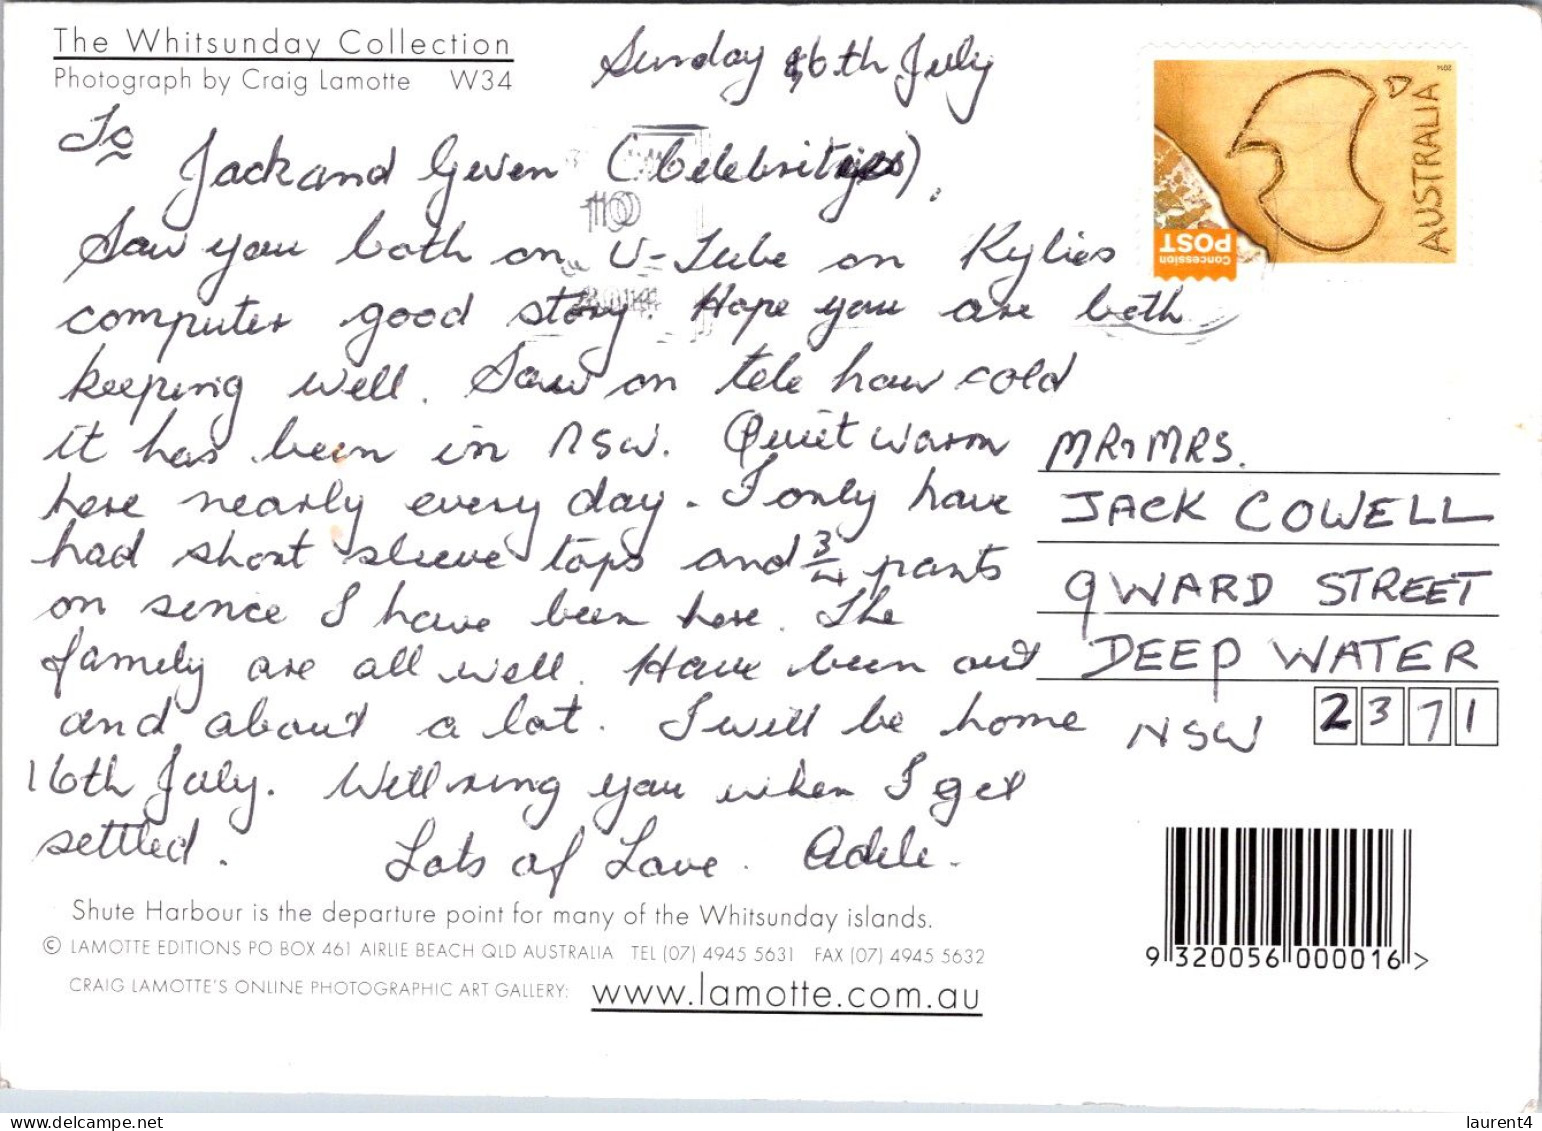 The Whitsunday Collection
Photograph by Craig Lamotte W34
Sunday 6th July
To
Jack and Gwen (Celebrities).
Saw you both on U-Tube on Kylies
computer good story. Hope you are both
keeping well. Saw on tele how cold
it has been in NSW. Quiet warm
here nearly every day. I only have
had short sleeve tops and 3/4 pants
on sence I have been here. The
family are all well. Have been out
and about a lot. I will be home
16th July. Will ring you when I get
settled. Lots of Love. Adele.
AUSTRALIA
2014
Concession
POST
MR MRS.
JACK COWELL
9 WARD STREET
DEEP WATER
NSW 2371
Shute Harbour is the departure point for many of the Whitsunday islands.
© LAMOTTE EDITIONS PO BOX 461 AIRLIE BEACH QLD AUSTRALIA TEL (07) 4945 5631 FAX (07) 4945 5632
CRAIG LAMOTTE'S ONLINE PHOTOGRAPHIC ART GALLERY: www.lamotte.com.au
9 320056 000016 >
laurent4